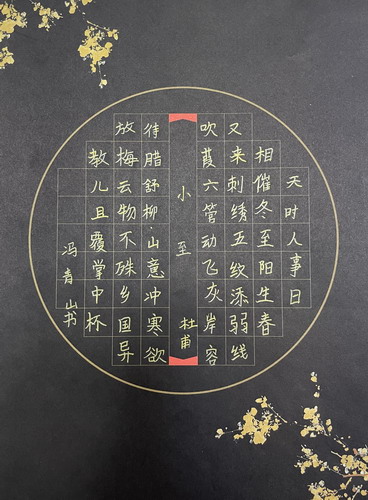 天时人事日
相催冬至阳生春
又来刺绣五纹添弱线
吹葭六管动飞灰岸容
小至 杜甫
待腊舒柳山意冲寒欲
放梅云物不殊乡国异
教儿且覆掌中杯
冯青山书